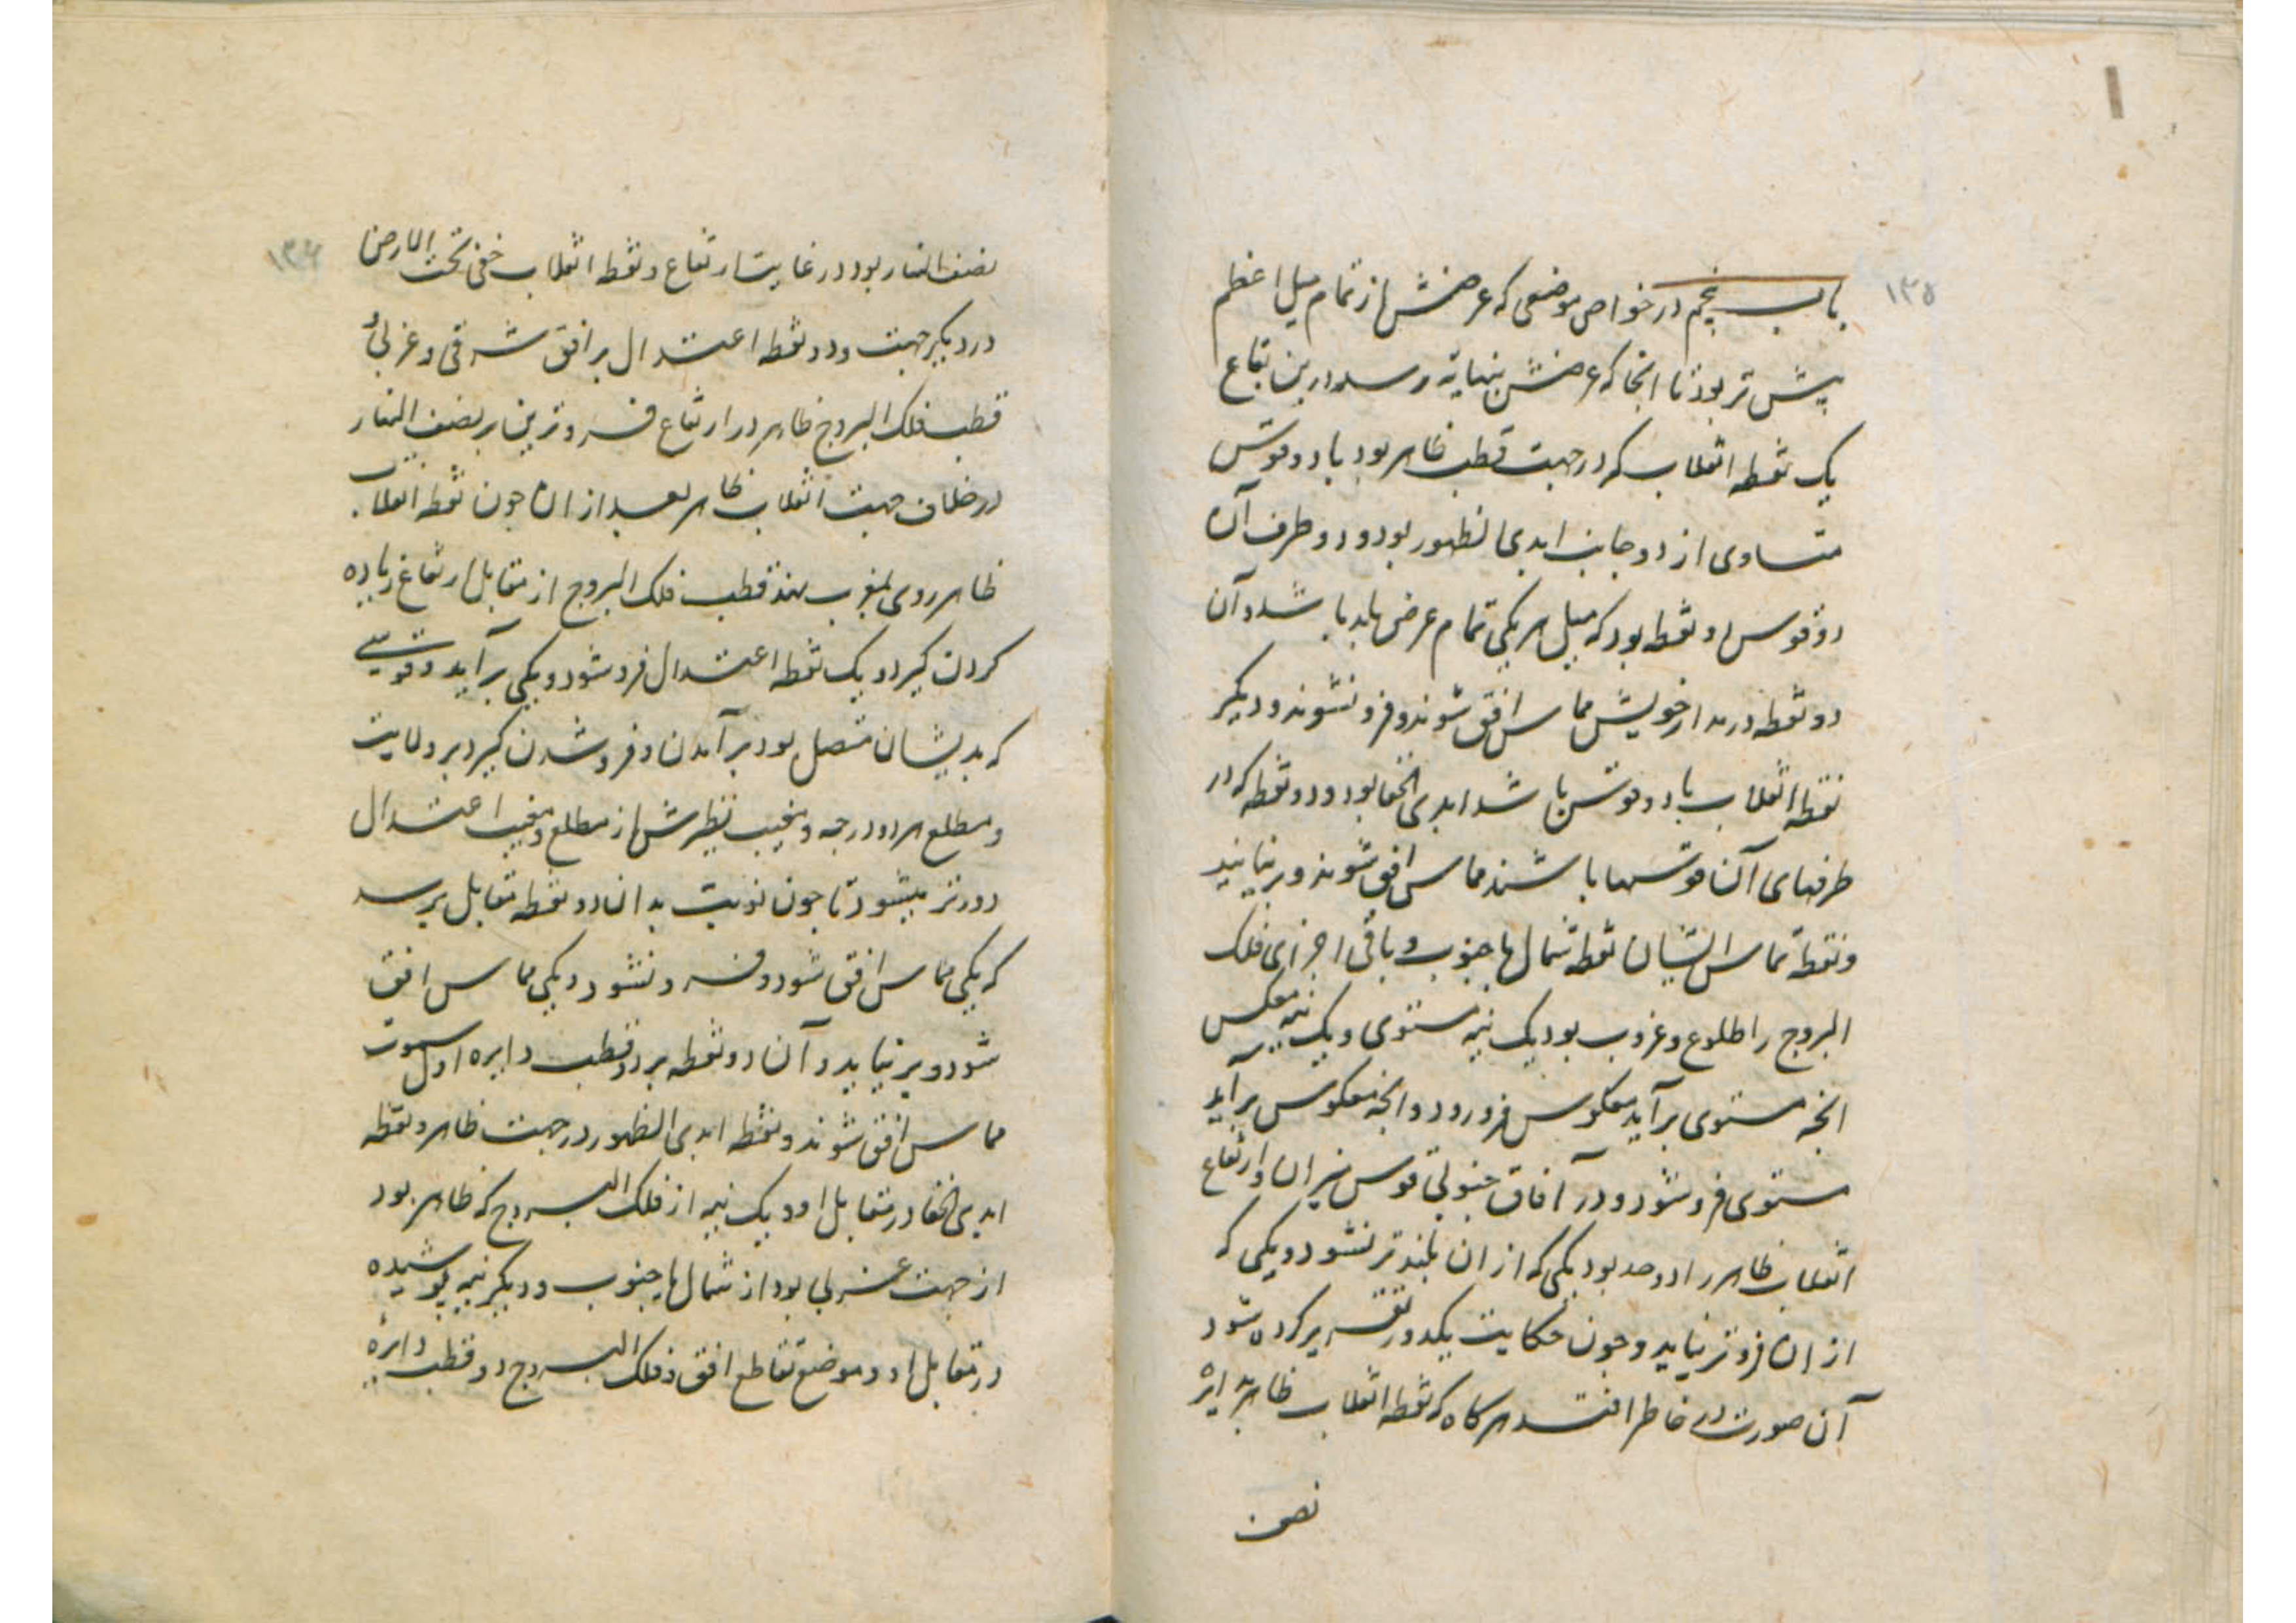 ۱۳۵
باب پنجم در خواص موضعی که عرضش از تمام میل اعظم
بیش تر بود تا انجا که عرضش بنهایة رسد و درین بقاع
یک نقطه انقلاب که در جهت قطب ظاهر بود با دو قوس
متساوی از دو جانب ابدی الظهور بود و دو طرف آن
دو قوس دو نقطه بود که میل هر یکی تمام عرض بلد باشد و آن
دو نقطه در مدار خویش مماس افق شوند و فرو نشوند و دیگر
نقطه انقلاب با دو قوس باشد ابدی الخفا بود و دو نقطه که در
طرفهای آن قوسها باشند مماس افق شوند و بر نیایند
و نقطة تماس ایشان نقطه شمال یا جنوب و باقی اجزای فلک
البروج را طلوع و غروب بود یک نیمه مستوی و یک نیمه معکوس
انچه مستوی برآید معکوس فرو رود و انچه معکوس برآید
مستوی فرو شود و در آفاق جنوبی قوس میزان و ارتفاع
انقلاب ظاهر را دو حد بود یکی که از ان بلندتر نشود و یکی که
از ان فروتر نیاید و چون حکایت یکدور تقریر کرده شود
آن صورت در خاطر افتد هرگاه که نقطه انقلاب ظاهر بدایرۀ
نصف
۱۳۶
نصف النهار بود در غایت ارتفاع و نقطه انقلاب خفی تحت الارض
در دیگر جهت و دو نقطه اعتدال بر افق شرقی و غربی و
قطب فلک البروج ظاهر در ارتفاع فروترین بر نصف النهار
در خلاف جهت انقلاب ظاهر بعد از ان چون نقطه انقلاب
ظاهر روی بمغرب نهد قطب فلک البروج از مقابل ارتفاع زیاده
کردن گیرد و یک نقطه اعتدال فرو شود و یکی برآید و قوسی
که بدیشان متصل بود برآمدن و فرو شدن گیرد بر ولایت
و مطلع هر دو درجه و مغیب نظیرش از مطلع و مغیب اعتدال
دورتر میشود تا چون نوبت بدان دو نقطه مقابل برسد
که یکی مماس افق شود و فرو نشود و یکی مماس افق
شود و بر نیاید و آن دو نقطه بر دو قطب دایره اول سموت
مماس افق شوند و نقطه ابدی الظهور در جهت ظاهر و نقطه
ابدی الخفا در مقابل او و یک نیمه از فلک البروج که ظاهر بود
از جهت غربی بود از شمال یا جنوب و دیگر نیمه پوشیده
در مقابل او و موضع تقاطع افق و فلک البروج دو قطب دایرۀ